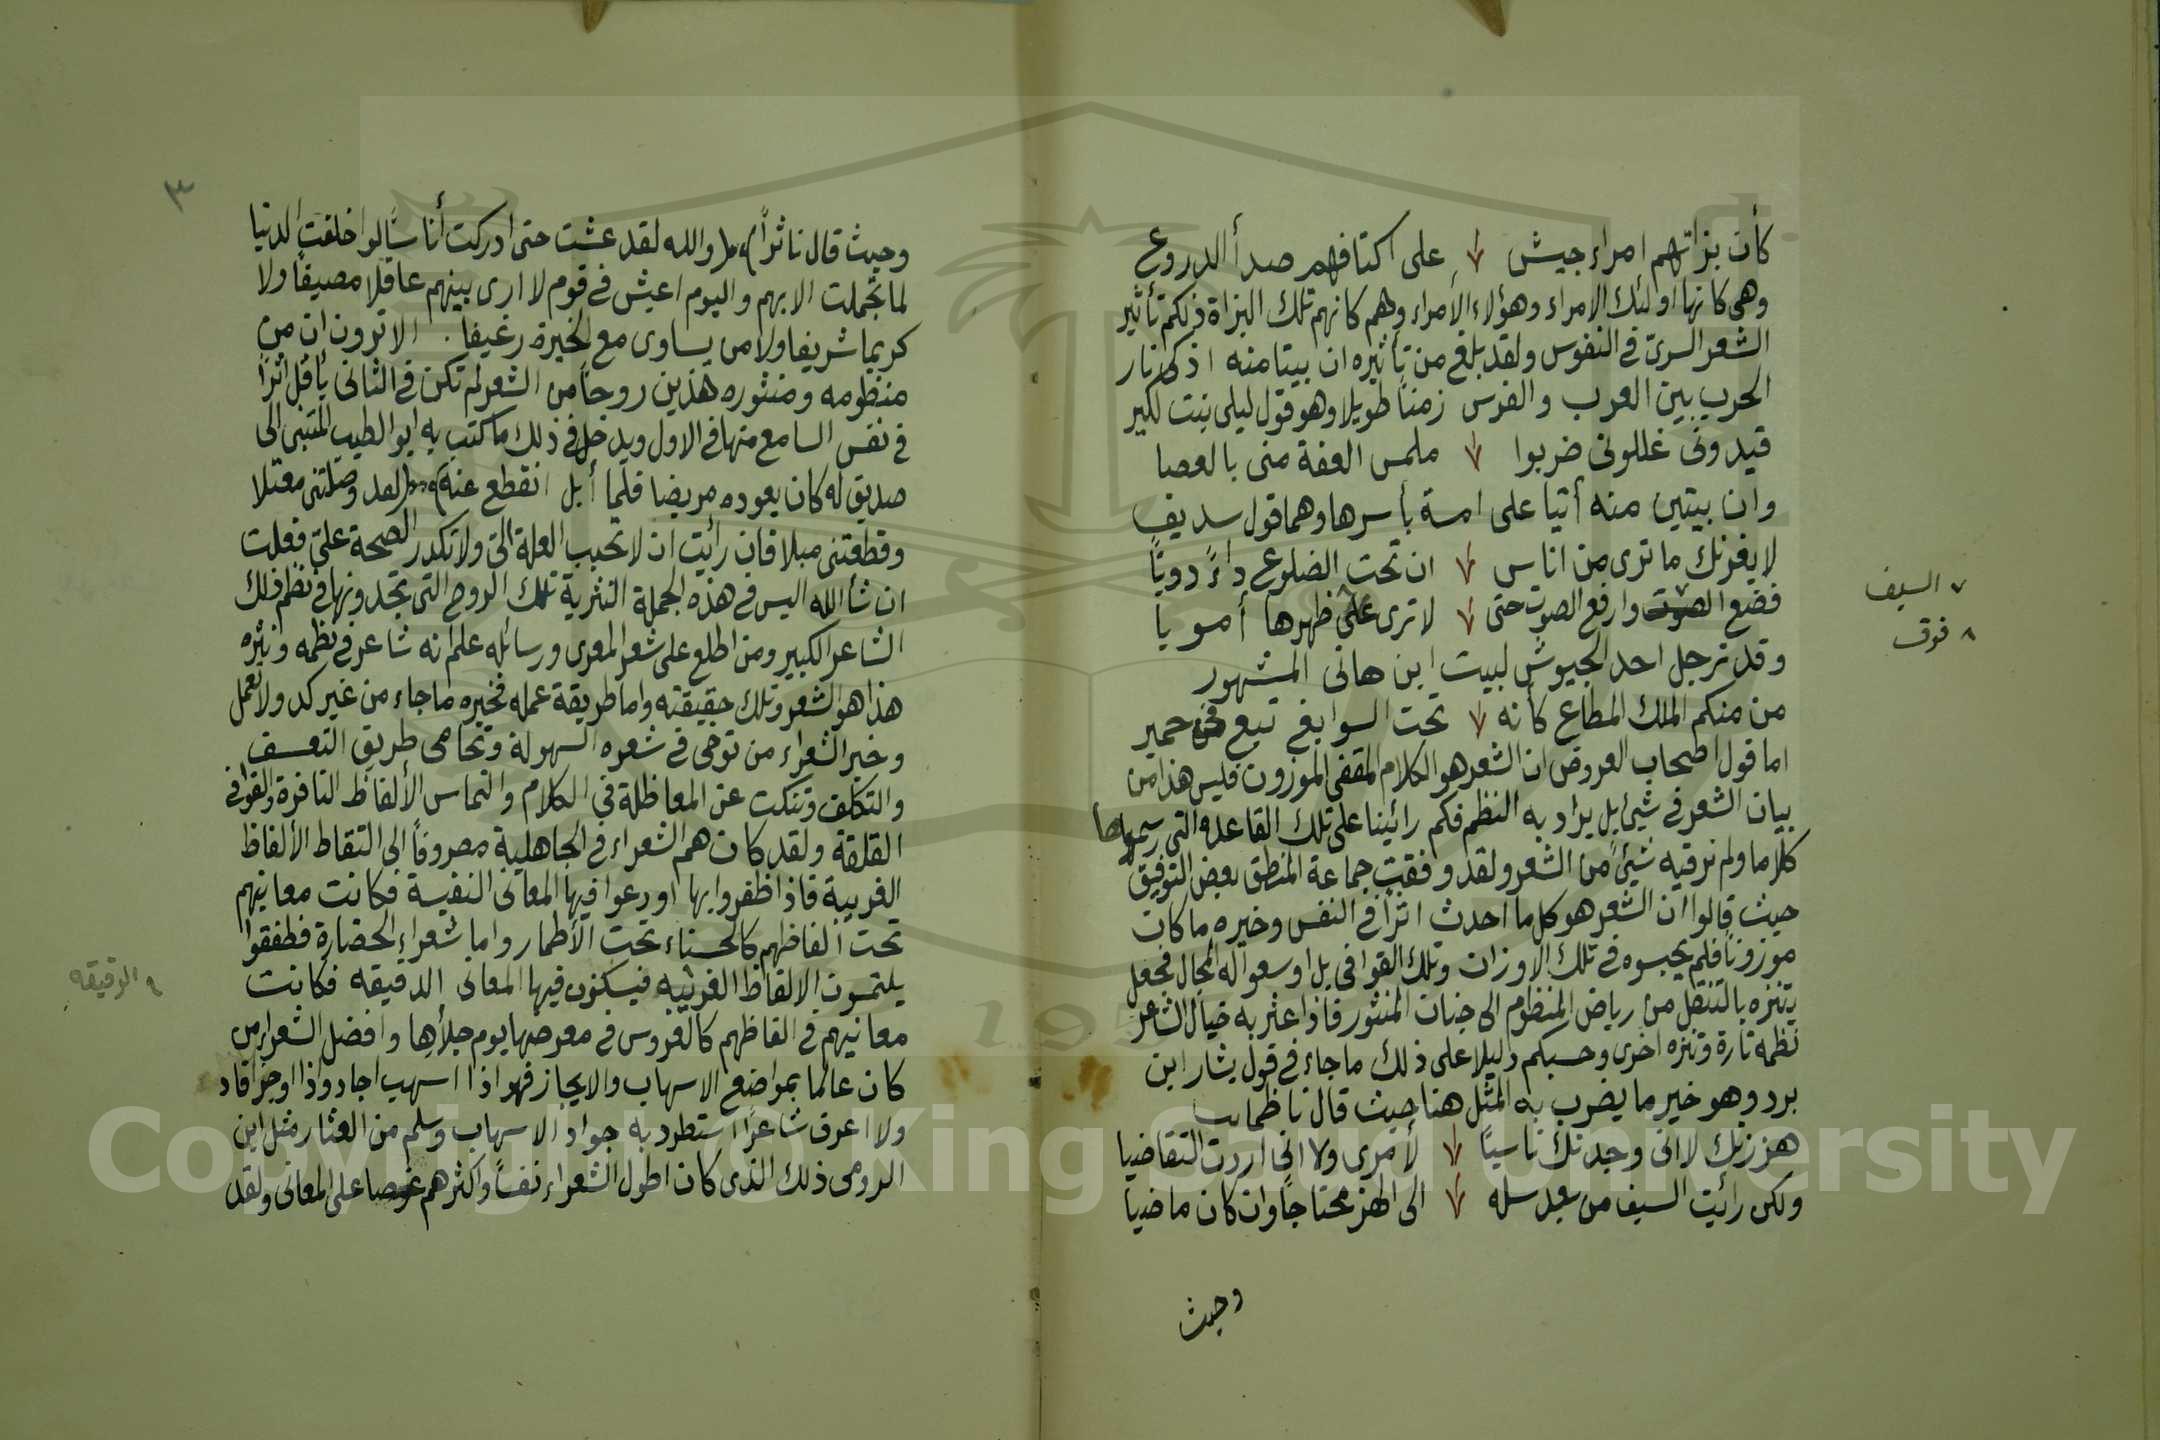 كأن بزاتهم امراء جيش على اكتافهم صدأ الدروع
وهى كانها اولئك الامراء وهؤلاء الأمراء وهم كانهم تلك البزاة ذلكم تأثير
الشعر السرىّ فى النفوس ولقد بلغ من تأثيره ان بيتا منه اذكى نار
الحرب بين العرب والفرس زمنا طويلا وهو قول ليلى بنت لكيز
قيدونى غللونى ضربوا ملمس العفة منى بالعصا
وان بيتين منه أتيا على امة بأسرها وهما قول سديف
لا يغرنك ما ترى من اناس ان تحت الضلوع داءً دويّا
فضع الصوت وارفع الصوت حتى لا ترى على ظهرها أمويا
٧ السيف
٨ فوق
وقد ترجل احد الجيوش لبيت ابن هانى المشهور
من منكم الملك المطاع كأنه تحت السوابغ تبع فى حمير
اما قول اصحاب العروض ان الشعر هو الكلام المقفى الموزون فليس هذا من
بيان الشعر فى شيئ بل يراد به النظم فكم رائينا على تلك القاعده التى رسموها
كلاما ولم نر فيه شيئ من الشعر ولقد وفقت جماعة المنطق بعض التوفيق
حيث قالوا ان الشعر هو كل ما احدث اثرا فى النفس وخيره ما كان
موزونا فلم يحبسوه فى تلك الاوزان وتلك القوافى بل اوسعوا له المجال فجعل
يتنزه بالتنقل من رياض المنظوم الى جنات المنثور فاذا عثر به خيال الشاعر
نظمه تارة ونثره اخرى وحسبكم دليلا على ذلك ما جاء فى قول بشار ابن
برد وهو خير ما يضرب به المثل هنا حيث قال ناظما
هززتك لا انى وجدتك ناسيا لأمرى ولا انى اردت التقاضيا
ولكن رائيت السيف من بعد سله الى الهز محتاجاً وان كان ماضيا
وحيث
٣
وحيث قال ناثراً والله لقد عشت حتى ادركت أناسا لو اخلقت الدنيا
لما تجملت الا بهم واليوم اعيش فى قوم لا ارى بينهم عاقلا مصيفا ولا
كريما شريفا ولا من يساوى مع الخيرة رغيفا الا ترون ان من
منظومه ومنثوره هذين روحا من الشعر لم تكن فى الثانى بأقل اثرا
فى نفس السامع منها فى الاول ويدخل فى ذلك ما كتب به ابو الطيب المتنبى الى
صديق له كان يعوده مريضا فلما أبل انقطع عنه لقد وصلتنى معتلا
وقطعتنى مبلا فان رائيت ان لا تحبب العلة الىّ ولا تكدر الصحة علىّ فعلت
ان شاالله اليس فى هذه الجملة النثرية تلك الروح التى تجدونها فى نظم ذلك
الشاعر الكبير ومن اطلع على شعر المعرى ورسائله علم انه شاعر فى نظمه ونثره
هذا هو الشعر وتلك حقيقته واما طريقة عمله فخيره ما جاء من غير كد ولا تعمل
وخير الشعراء من توخى فى شعره السهولة وتحامى طريق التعسف
والتكلف وتنكب عن المعاظلة فى الكلام والتماس الألفاظ النافرة والقوافى
القلقة ولقد كان هم الشعراء فى الجاهلية مصروفاً الى التقاط الألفاظ
الغريبة فاذا ظفروا بها اودعوا فيها المعانى النفيسة فكانت معانيهم
تحت الفاظهم كالحسناء تحت الأطمار واما شعراء الحضارة فطفقوا
يلتمسون الالفاظ الغريبه فيسكنون فيها المعانى الدقيقه فكانت
٩ الرقيقه
معانيهم فى الفاظهم كالعروس فى معرضها يوم جلأها وافضل الشعراء من
كان عالما بمواضع الاسهاب والايجاز فهو اذا اسهب اجاد واذا اوجز افاد
ولا اعرف شاعرا استطرد به جواد الاسهاب وسلم من العثار مثل ابن
الرومى ذلك الذى كان اطول الشعراء نفساً واكثرهم غوصا على المعانى ولقد
Copyright © King Saud University